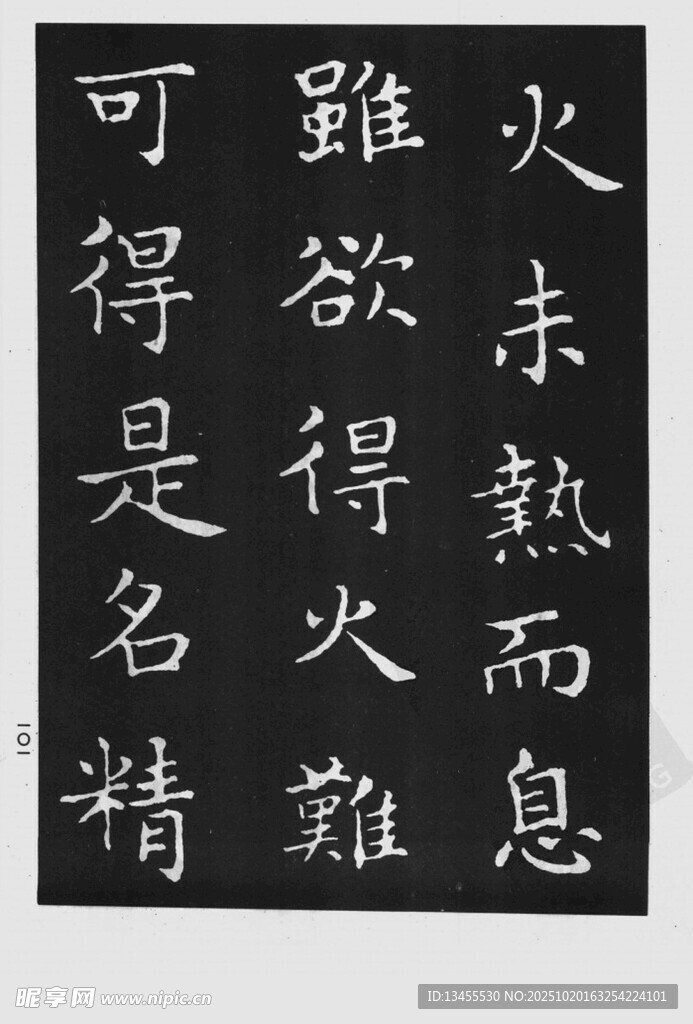 火未熱而息
雖欲得火難
可得是名精
一〇一
昵享网 www.nipic.cn
ID:13455530 NO:20251020163254224101